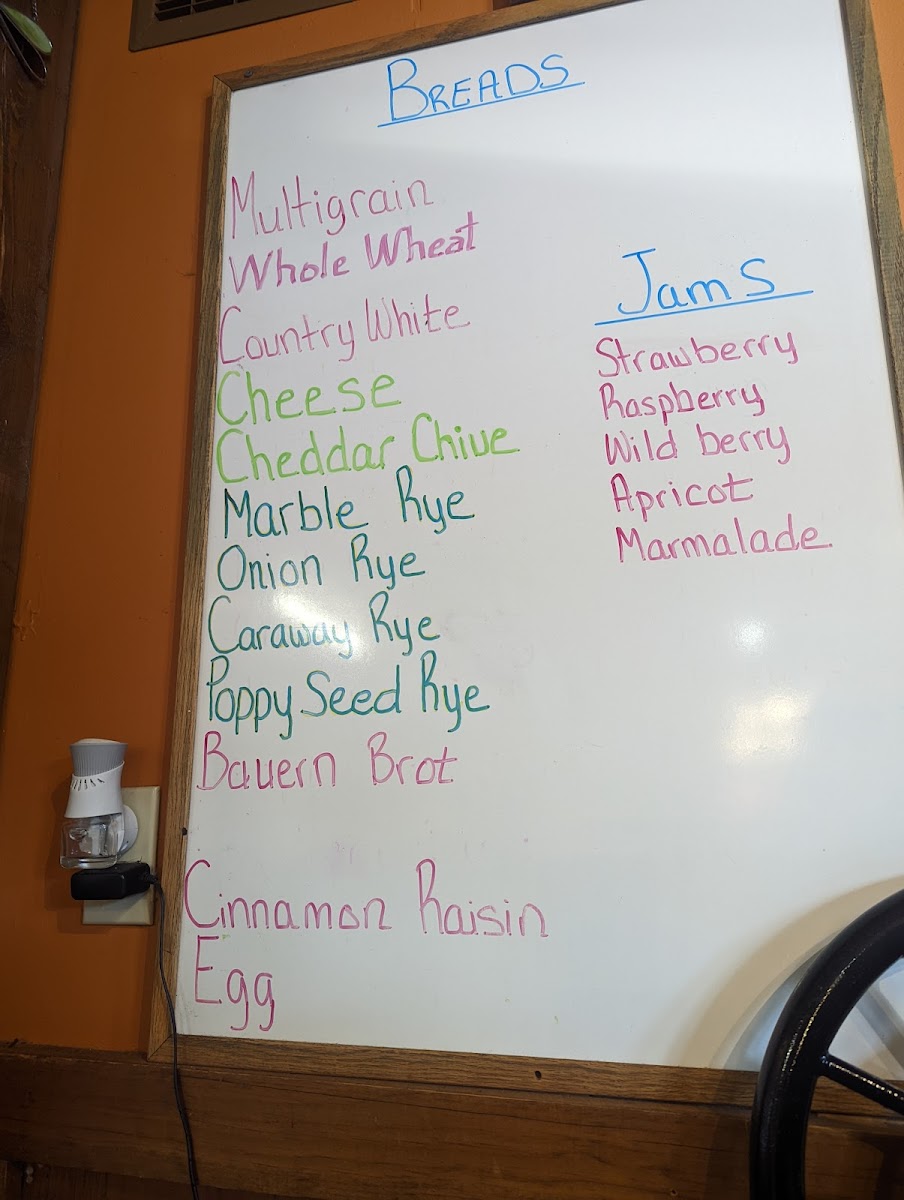 BREADS
Multigrain
Whole Wheat
Country White
Cheese
Cheddar Chive
Marble Rye
Onion Rye
Caraway Rye
Poppy Seed Rye
Bauern Brot
Cinnamon Raisin
Egg
Jams
Strawberry
Raspberry
Wild berry
Apricot
Marmalade